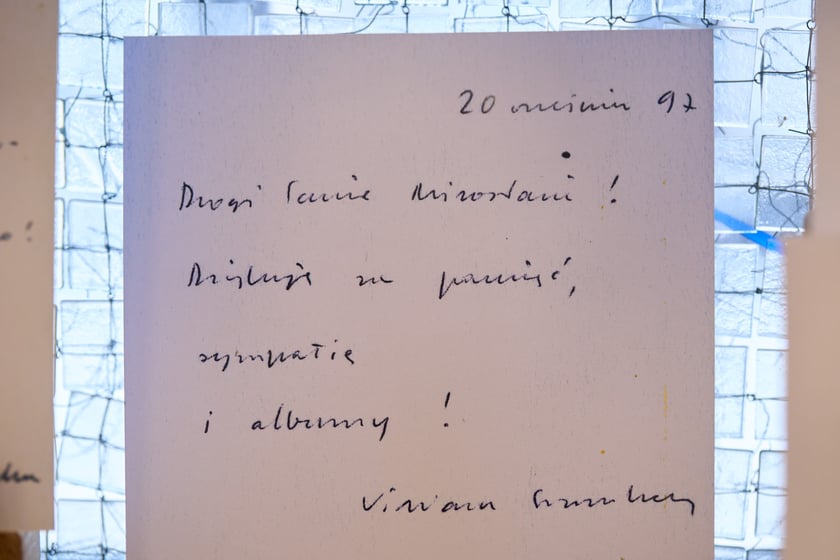 20 września 97
Drogi Panie Mirosławie !
Dziękuję za pamięć,
sympatię
i albumy !